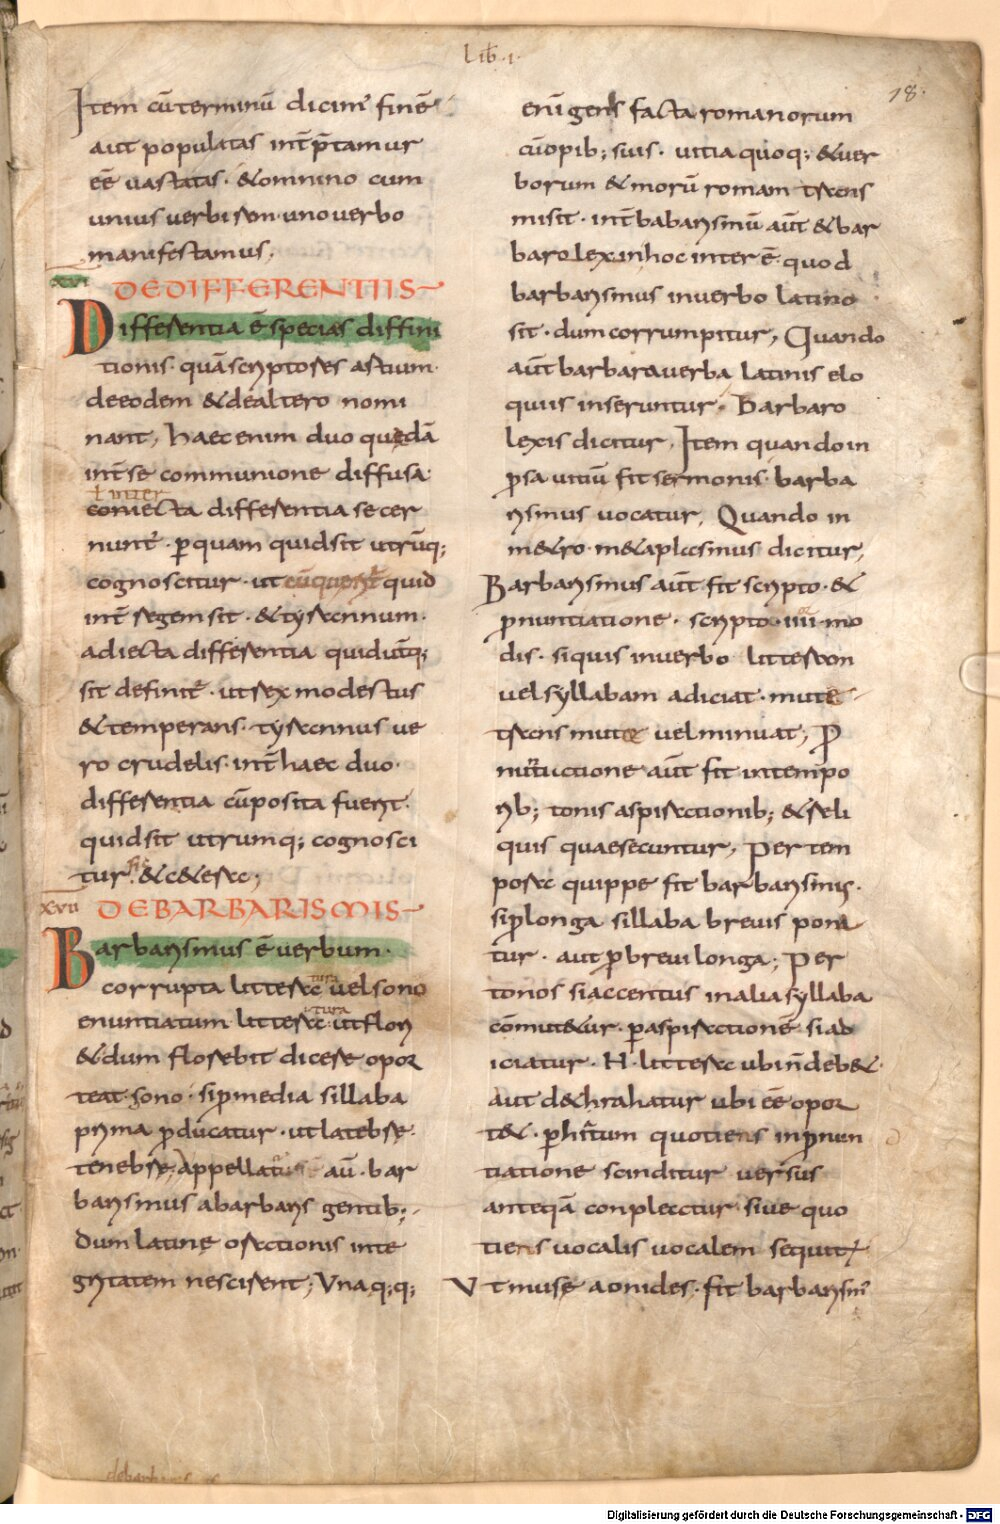 Lib · i ·
18 ·
Item cū terminū dicim' finē
aut populatas int̄ p̄tamur
eē uastatas · & omnino cum
unius uerbi sen uno uerbo
manifestamus ;
xvi DE DIFFERENTIIS
Differentia ē species diffini
tionis · quā scriptores artium ·
de eodem & de altero nomi
nant , haec enim duo quędā
int̄ se communione diffusa ·
ł inter
coniecta differentia secer
nunt̄ · p quam quid sit utrūq;
cognoscitur · ut quid
int̄ regem sit · & tyrannum ·
adiecta differentia quid utrq;
sit definit̄ · ut rex modestus
& temperans · tyrannus ue
ro crudelis · int̄ haec duo ·
differentia cū posita fuerit ·
quid sit utrumq; cognosci
tur · sic & cetera ;
xvii DE BARBARISMIS
Barbarismus ē uerbum ·
corrupta littera uel sono
tura
enuntiatum littera · ut flori
tura
& dum florebit dicere opor
teat sono · si p media sillaba
prima pducatur · ut latebre ·
tenebre, Appellatus aū · bar
barismus a barbaris gentib; ·
dum latine orationis inte
gritatem nescirent ; Una q;q;
enī gens facta romanorum
cū opib; suis · uitia quoq; & uer
borum & morū romam trans
misit · int̄ babarismū aūt & bar
barolexin hoc inter ē · quod
barbarismus in uerbo latino
sit · dum corrumpitur , Quando
aūt barbara uerba latinis elo
quiis inseruntur · Barbaro
lexis dicitur , Item quando in
psa uitiū fit sermonis · barba
rismus uocatur , Quando in
metro · metaplasmus dicitur ,
Barbarismus aūt fit scripto · &
pnuntiatione · scripto · iiii · mo
dis · si quis in uerbo litteram
uel syllabam adiciat · mutet
trans mutet uel minuat , P
nuntiatione aūt fit in tempo
rib; tonis aspirationib; & reli
quis quae secuntur , Per tem
pora quippe fit barbarismus ·
si p longa sillaba breuis pona
tur · aut p breui longa ; Per
tonos si accentus in alia syllaba
cōmutetur · p aspirationē · si ad
iciatur · H · littera ubi n̄ debet ·
Aut detrahatur ubi eē opor
tet · p hiatum quotiens in pnun
tiatione scinditur uersus
antequā conpleatur siue quo
tiens uocalis uocalem sequitr
Ut muse aonides · fit barbarism'
Digitalisierung gefördert durch die Deutsche Forschungsgemeinschaft - DFG